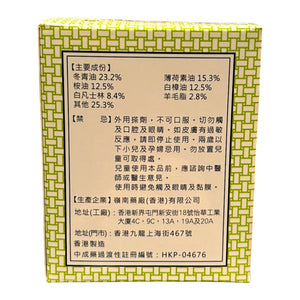 【主要成份】
冬青油 23.2% 薄荷素油 15.3%
桉油 12.5% 白樟油 12.5%
白凡士林 8.4% 羊毛脂 2.8%
其他 25.3%
【禁 忌】外用搽劑，不可口服，切勿觸
及口腔及眼睛，如皮膚有過敏
反應，請即停止使用，兩歲以
下小兒及孕婦忌用，勿放近兒
童可取得處。
兒童使用本品前，應諮詢中醫
師或醫生意見。
使用時避免觸及眼睛及黏膜。
【生產企業】嶺南藥廠(香港)有限公司
地址(工廠)：香港新界屯門新安街18號怡華工業
大廈4C、9C，13A，19A及20A
地址(門市)：香港九龍上海街467號
香港製造
中成藥過渡性註冊編號：HKP-04676